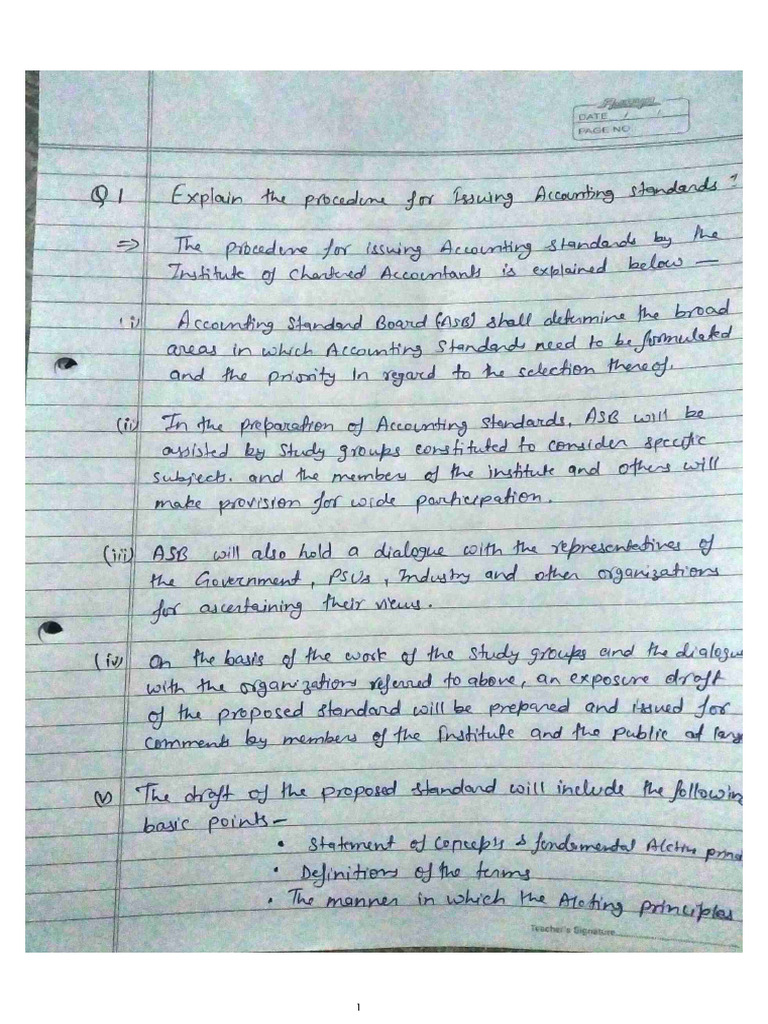 DATE / /
PAGE NO.
Q 1 Explain the procedure for Issuing Accounting standards?
⇒ The procedure for issuing Accounting standards by the
Institute of Chartered Accountants is explained below —
(i) Accounting Standard Board (ASB) shall determine the broad
areas in which Accounting Standards need to be formulated
and the priority in regard to the selection thereof.
(ii) In the preparation of Accounting Standards, ASB will be
assisted by study groups constituted to consider specific
subjects. and the members of the institute and others will
make provision for wide participation.
(iii) ASB will also hold a dialogue with the representatives of
the Government, PSUs, Industry and other organizations
for ascertaining their views.
(iv) On the basis of the work of the study groups and the dialogue
with the organizations referred to above, an exposure draft
of the proposed standard will be prepared and issued for
comments by members of the Institute and the public at larg
(v) The draft of the proposed standard will include the followin
basic points —
• Statement of concepts & fundamental princ
• Definitions of the terms
• The manner in which the Alcting principles
Teacher's Signature
1